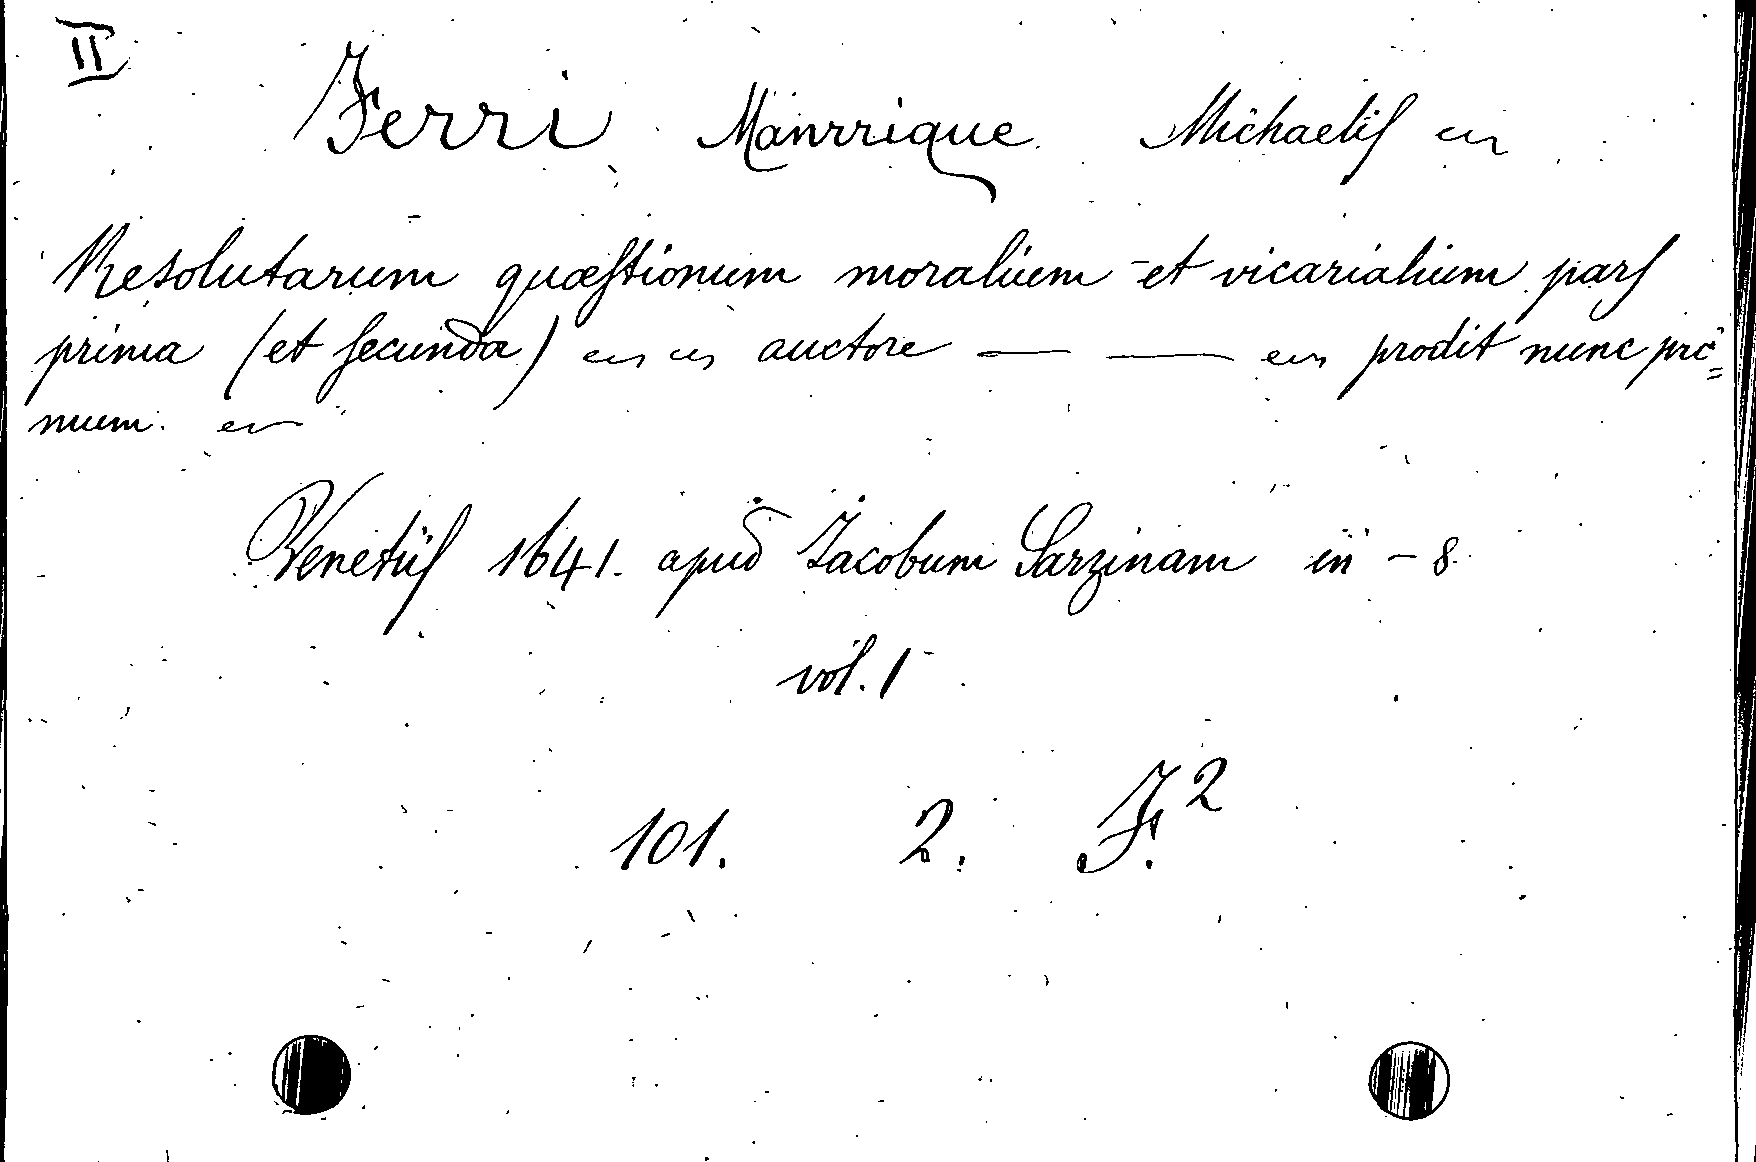 II
Ferri Manrrique Michaelis
Resolutarum quæstionum moralium et vicarialium pars
prima (et secunda) auctore — — prodit nunc pri=
mum.
Venetiis 1641. apud Jacobum Sarzinam in - 8.
vol. 1
101. 2. F.²